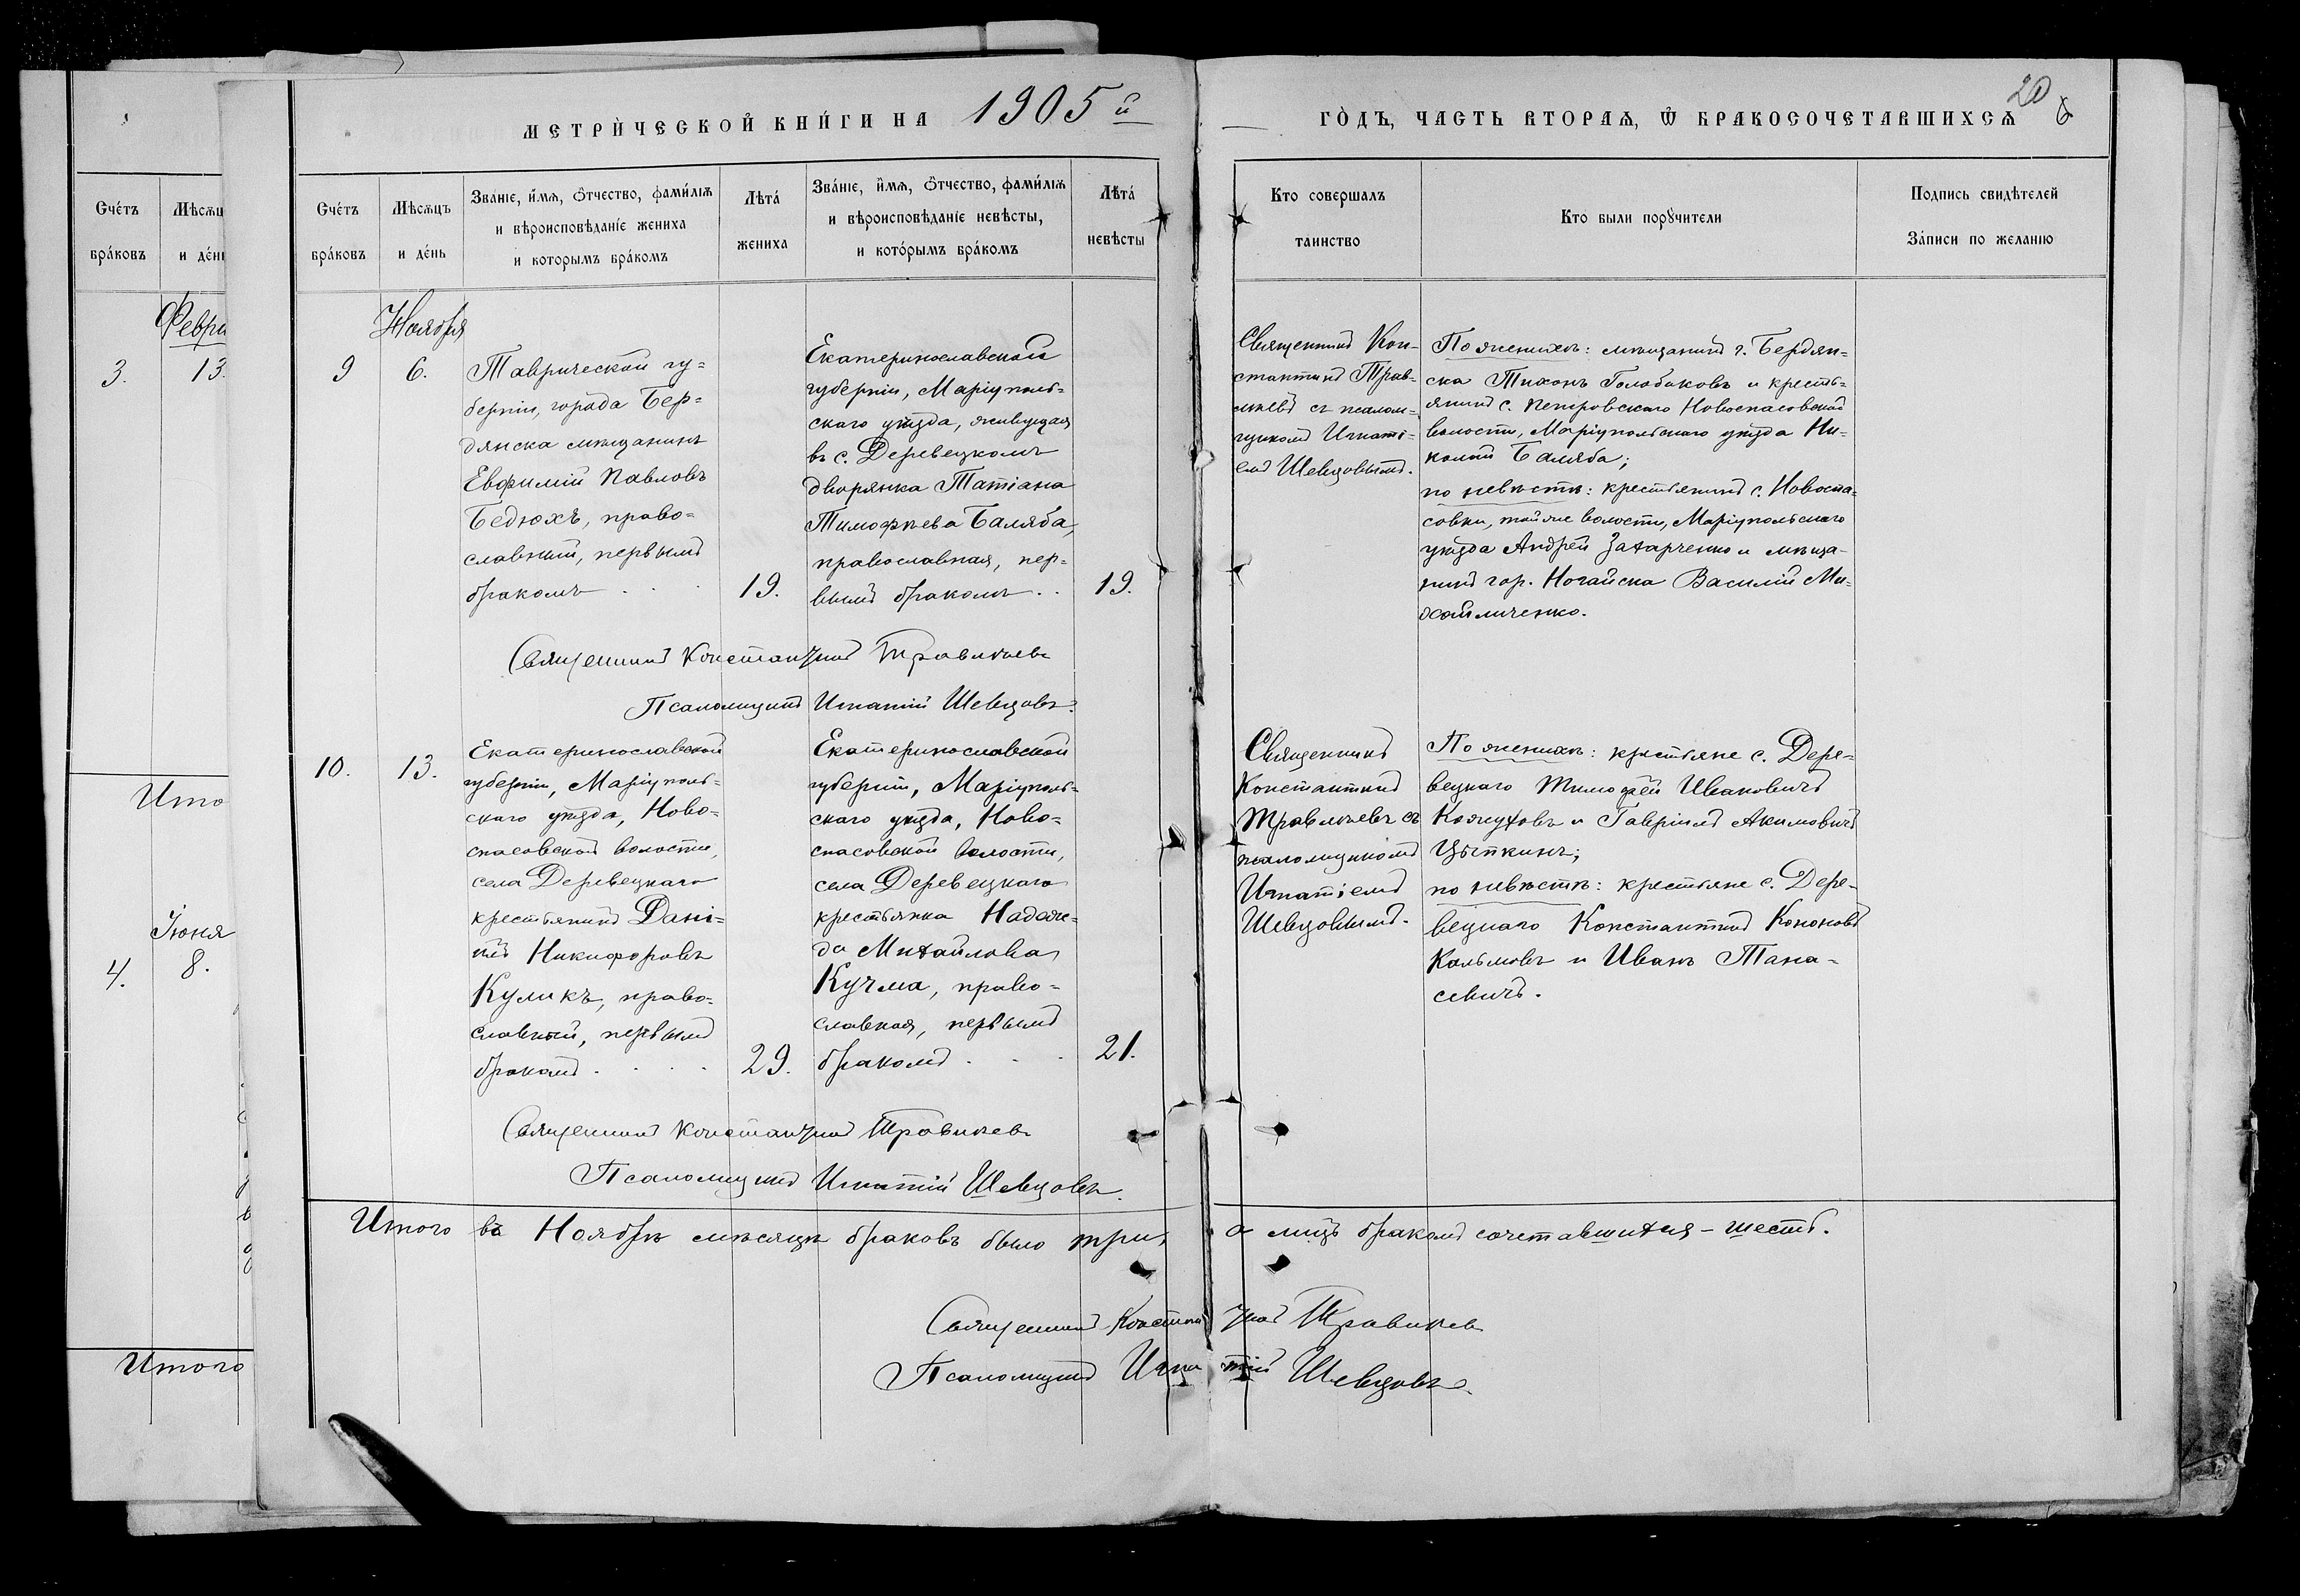 МЕТРИ́ЧЕСКОЙ КНИ́ГИ НА 1905й
ГО́ДЪ, ЧАСТЬ ВТОРАѦ, Ѿ БРАКОСОЧЕТАВШИХСѦ
20
Сче́тъ бра́ковъ
Мѣсѧц и де́н
Сче́тъ бра́ковъ
Мѣсѧцъ и де́нь
Зва́нїе, и́мѧ, ѻ҆́тчество, фами́лїѧ и вѣроисповѣданїе жениха и которымъ бра́комъ
Лѣта́ жениха
Зва́нїе, и́мѧ, ѻ҆́тчество, фами́лїѧ и вѣроисповѣданїе невѣсты, и кото́рымъ бра́комъ
Лѣта́ невѣсты
Кто совершалъ таинство
Кто были порꙋчители
Подпись свидѣтелей За́писи по желанїю
Февра
3.
13.
Ито
Іюня
4.
8.
Итого
Ноября
9
6.
Таврической гу=
берніи, города Бер=
дянска мѣщанинъ
Евфимій Павловъ
Бедюхъ, право=
славный, первымъ
бракомъ . . .
19.
Екатеринославской
губерніи, Маріуполь=
скаго уѣзда, живущая
въ с. Деревецкомъ
дворянка Татіана
Тимофѣева Баляба,
православная, пер=
вымъ бракомъ . .
19.
Священникъ Кон-
стантинъ Трав-
лѣевъ съ псалом-
щикомъ Игнаті-
емъ Шевцовымъ.
По женихѣ: мѣщанинъ г. Бердян=
ска Тихонъ Голобоковъ и кресть=
янинъ с. Петровскаго Новоспасовской
волости, Маріупольскаго уѣзда Ни-
колай Баляба;
по невѣстѣ: крестьянинъ с. Новоспа=
совки, тойже волости, Маріупольскаго
уѣзда Андрей Захарченко и мѣща-
нинъ гор. Ногайска Василій Ми=
хайличенко.
Священникъ Константинъ
Псаломщикъ Игнатій Шевцовъ.
10.
13.
Екатеринославской
губерніи, Маріуполь=
скаго уѣзда, Ново=
спасовской волости,
села Деревецкаго
крестьянинъ Дані=
илъ Никифоровъ
Куликъ, право=
славный, первымъ
бракомъ . . . .
29.
Екатеринославской
губерніи, Маріуполь=
скаго уѣзда, Ново=
спасовской волости,
села Деревецкаго
крестьянка Надеж=
да Михайлова
Кучма, право=
славная, первымъ
бракомъ . . .
21.
Священникъ
Константинъ
Травлѣевъ съ
псаломщикомъ
Игнатіемъ
Шевцовымъ.
По женихѣ: крестьяне с. Дере=
вецкаго Тимофей Ивановичъ
Кожуховъ и Гавріилъ Акимовичъ
Цыпкинъ;
по невѣстѣ: крестьяне с. Дере-
вецкаго Константинъ Кононовъ
и Иванъ Тана-
севичъ.
Священникъ Константинъ
Псаломщикъ Игнатій Шевцовъ.
Итого въ Ноябрѣ мѣсяцѣ браковъ было три, а лицъ бракомъ сочетавшихся – шесть.
Священникъ Константинъ
Псаломщикъ Игнатій Шевцовъ.